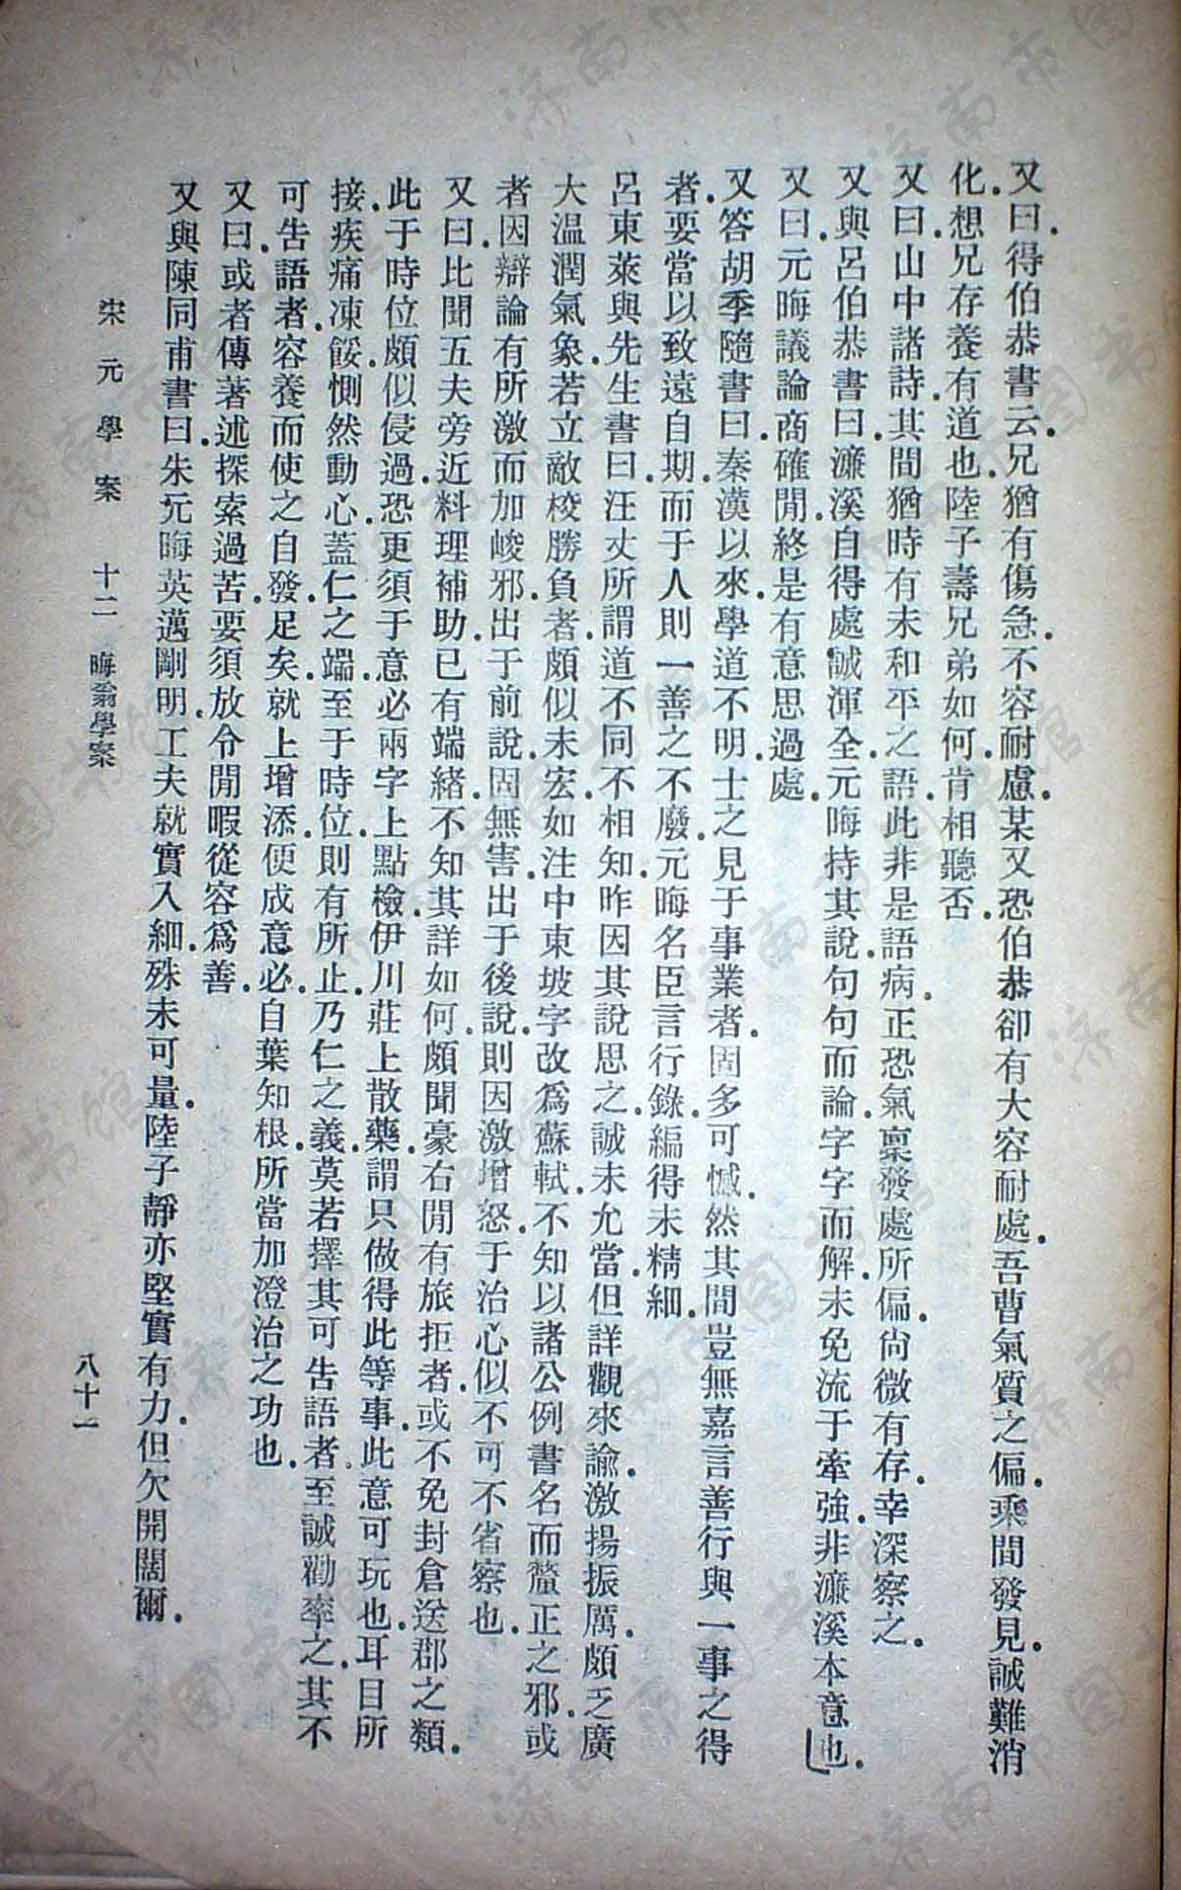 又曰.得伯恭書云.兄猶有傷急.不容耐慮.某又恐伯恭卻有大容耐處.吾曹氣質之偏.乘間發見.誠難消
化.想兄存養有道也.陸子壽兄弟如何.肯相聽否.
又曰.山中諸詩.其間猶時有未和平之語.此非是語病.正恐氣稟發處所偏.尚微有存.幸深察之.
又與呂伯恭書曰.濂溪自得處誠渾全.元晦持其說句句而論.字字而解.未免流于牽強.非濂溪本意也.
又曰.元晦議論商確閒.終是有意思過處.
又答胡季隨書曰.秦漢以來.學道不明.士之見于事業者.固多可憾.然其間豈無嘉言善行與一事之得
者.要當以致遠自期.而于人則一善之不廢.元晦名臣言行錄.編得未精細.
呂東萊與先生書曰.汪丈所謂道不同.不相知.昨因其說思之.誠未允當.但詳觀來諭.激揚振厲.頗乏廣
大溫潤氣象.若立敵校勝負者.頗似未宏.如注中東坡字改爲蘇軾.不知以諸公例書名而釐正之邪.或
者因辯論有所激而加峻邪.出于前說.固無害.出于後說.則因激增怒.于治心似不可不省察也.
又曰.比聞五夫旁近.料理補助.已有端緒.不知其詳如何.頗聞豪右閒有旅拒者.或不免封倉送郡之類.
此于時位.頗似侵過.恐更須于意必兩字上點檢.伊川莊上散藥.謂只做得此等事.此意可玩也.耳目所
接.疾痛凍餒.惻然動心.蓋仁之端.至于時位.則有所止.乃仁之義.莫若擇其可告語者.至誠勸率之.其不
可告語者.容養而使之自發足矣.就上增添.便成意必.自葉知根.所當加澄治之功也.
又曰.或者傳著述探索過苦.要須放令閒暇從容爲善.
又與陳同甫書曰.朱元晦英邁剛明.工夫就實入細.殊未可量.陸子靜亦堅實有力.但欠開闊爾.
宋元學案 十二 晦翁學案 八十一